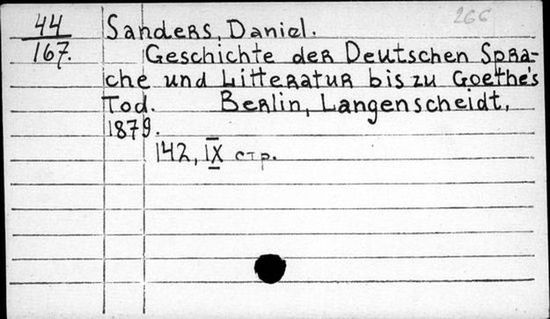 266
44 Sanders, Daniel.
167. Geschichte der Deutschen Spra-
che und Litteratur bis zu Goethe's
Tod. Berlin, Langenscheidt,
1879.
142, IX стр.